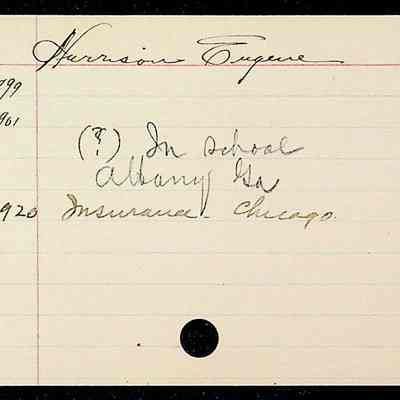 Harrison Eugene
799
901
(?) In school
Albany Ga
1920 Insurance - Chicago.